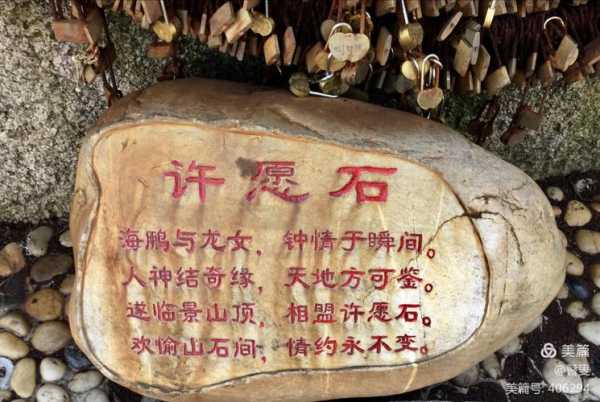 许愿石
海鹏与龙女，钟情于瞬间。
人神结奇缘，天地方可鉴。
遂临景山顶，相盟许愿石。
欢愉山石间，情约永不变。
美篇
美篇号: 406294